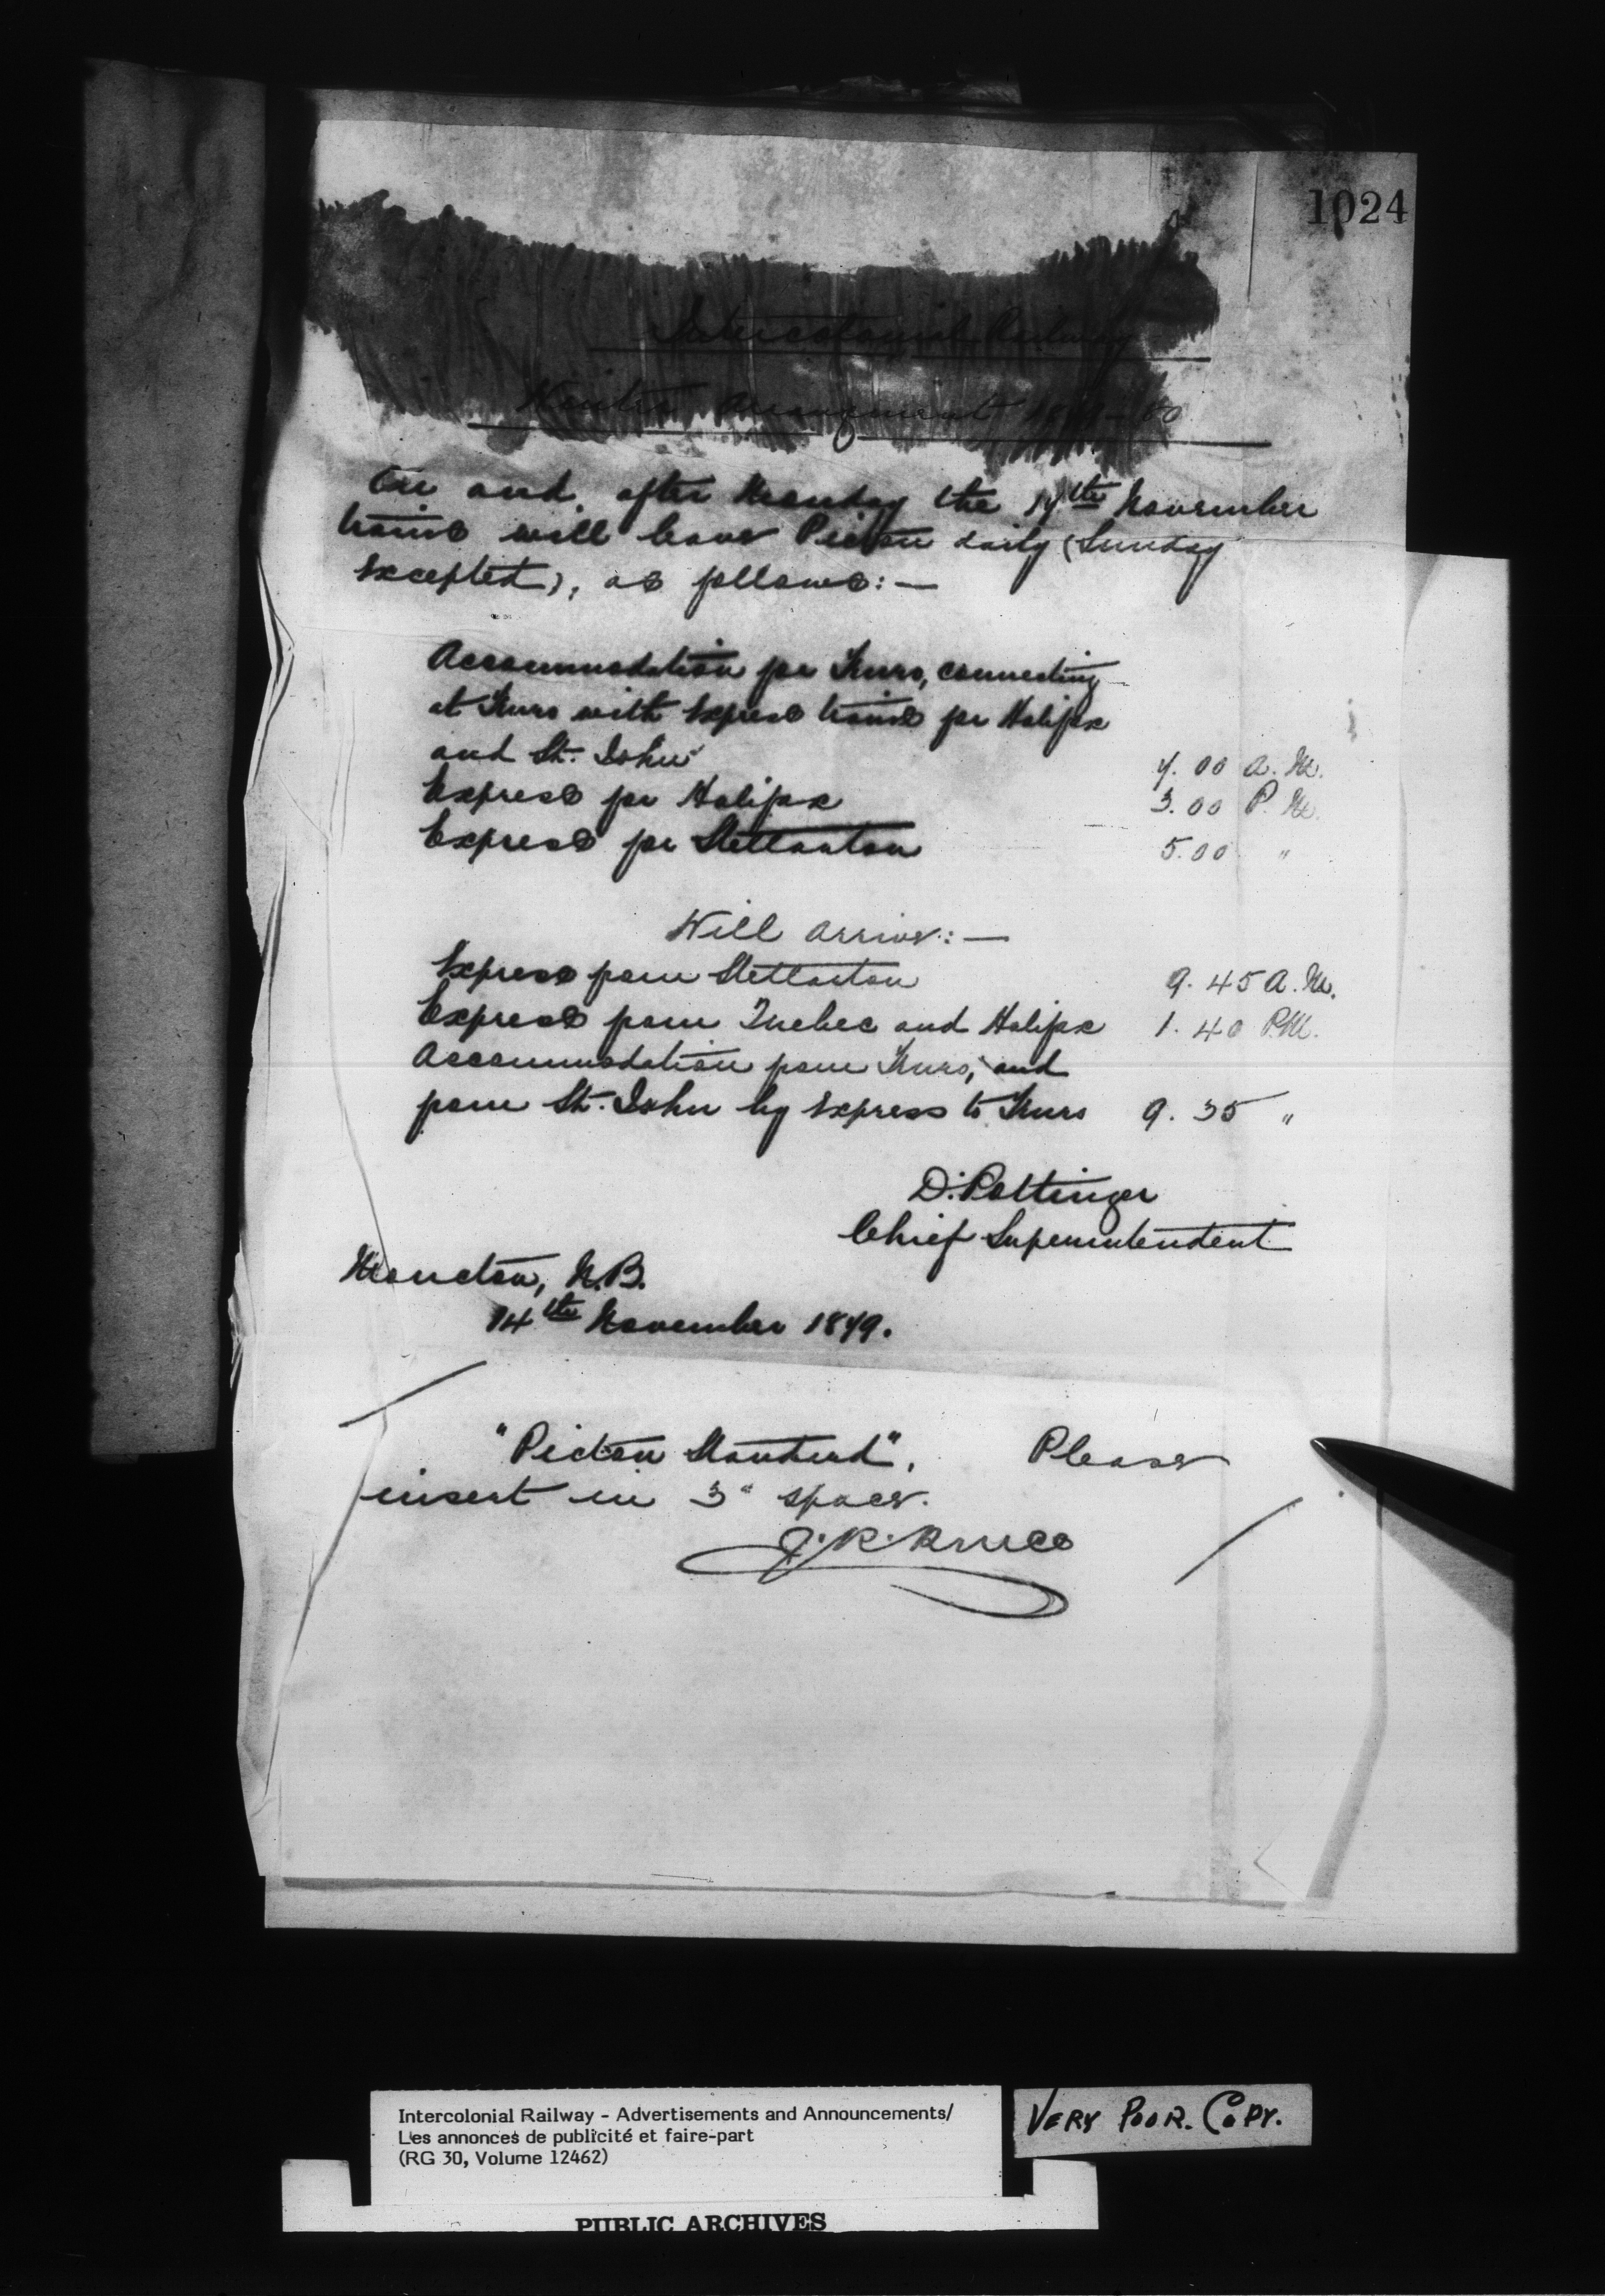 1024
Intercolonial Railway
Winter Arrangement 1879-80
On and after Monday the 17th November
trains will leave Pictou daily (Sunday
excepted), as follows:—
Accommodation for Truro, connecting
at Truro with Express trains for Halifax
and St. John 7.00 A.M.
Express for Halifax 3.00 P.M.
Express for Stellarton 5.00 "
Will arrive:—
Express from Stellarton 9.45 A.M.
Express from Quebec and Halifax 1.40 P.M.
Accommodation from Truro, and
from St. John by Express to Truro 9.35 "
D. Pottinger
Chief Superintendent
Moncton, N.B.
14th November 1879.
"Pictou Standard". Please
insert in 3" space.
J. R. Bruce
Intercolonial Railway - Advertisements and Announcements/
Les annonces de publicité et faire-part
(RG 30, Volume 12462)
VERY POOR. COPY.
PUBLIC ARCHIVES